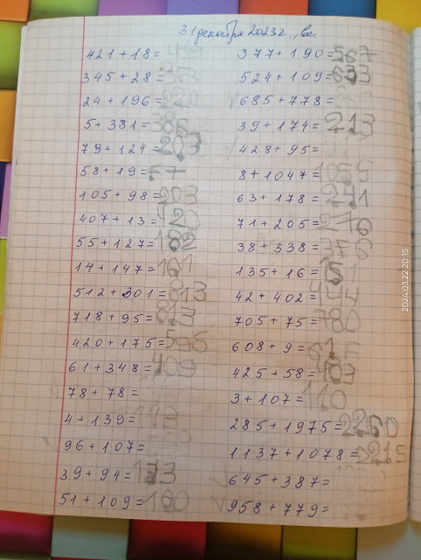 31 декабря 2023 г.,
421+18=
345+28=
24+196=
5+381=386
79+124=203
58+19=
105+98=203
407+13=420
55+127=182
14+147=161
512+301=813
718+95=813
420+175=595
61+348=409
78+78=
4+139=143
96+107=
39+94=133
51+109=160
377+190=567
524+109=633
685+778=
39+174=213
428+95=
8+1047=1055
63+178=241
71+205=276
38+338=376
135+16=151
42+402=444
705+75=780
608+9=
425+58=
3+107=110
285+1975=2260
1137+1078=2215
645+387=
958+779=
2024.03.22 20:15